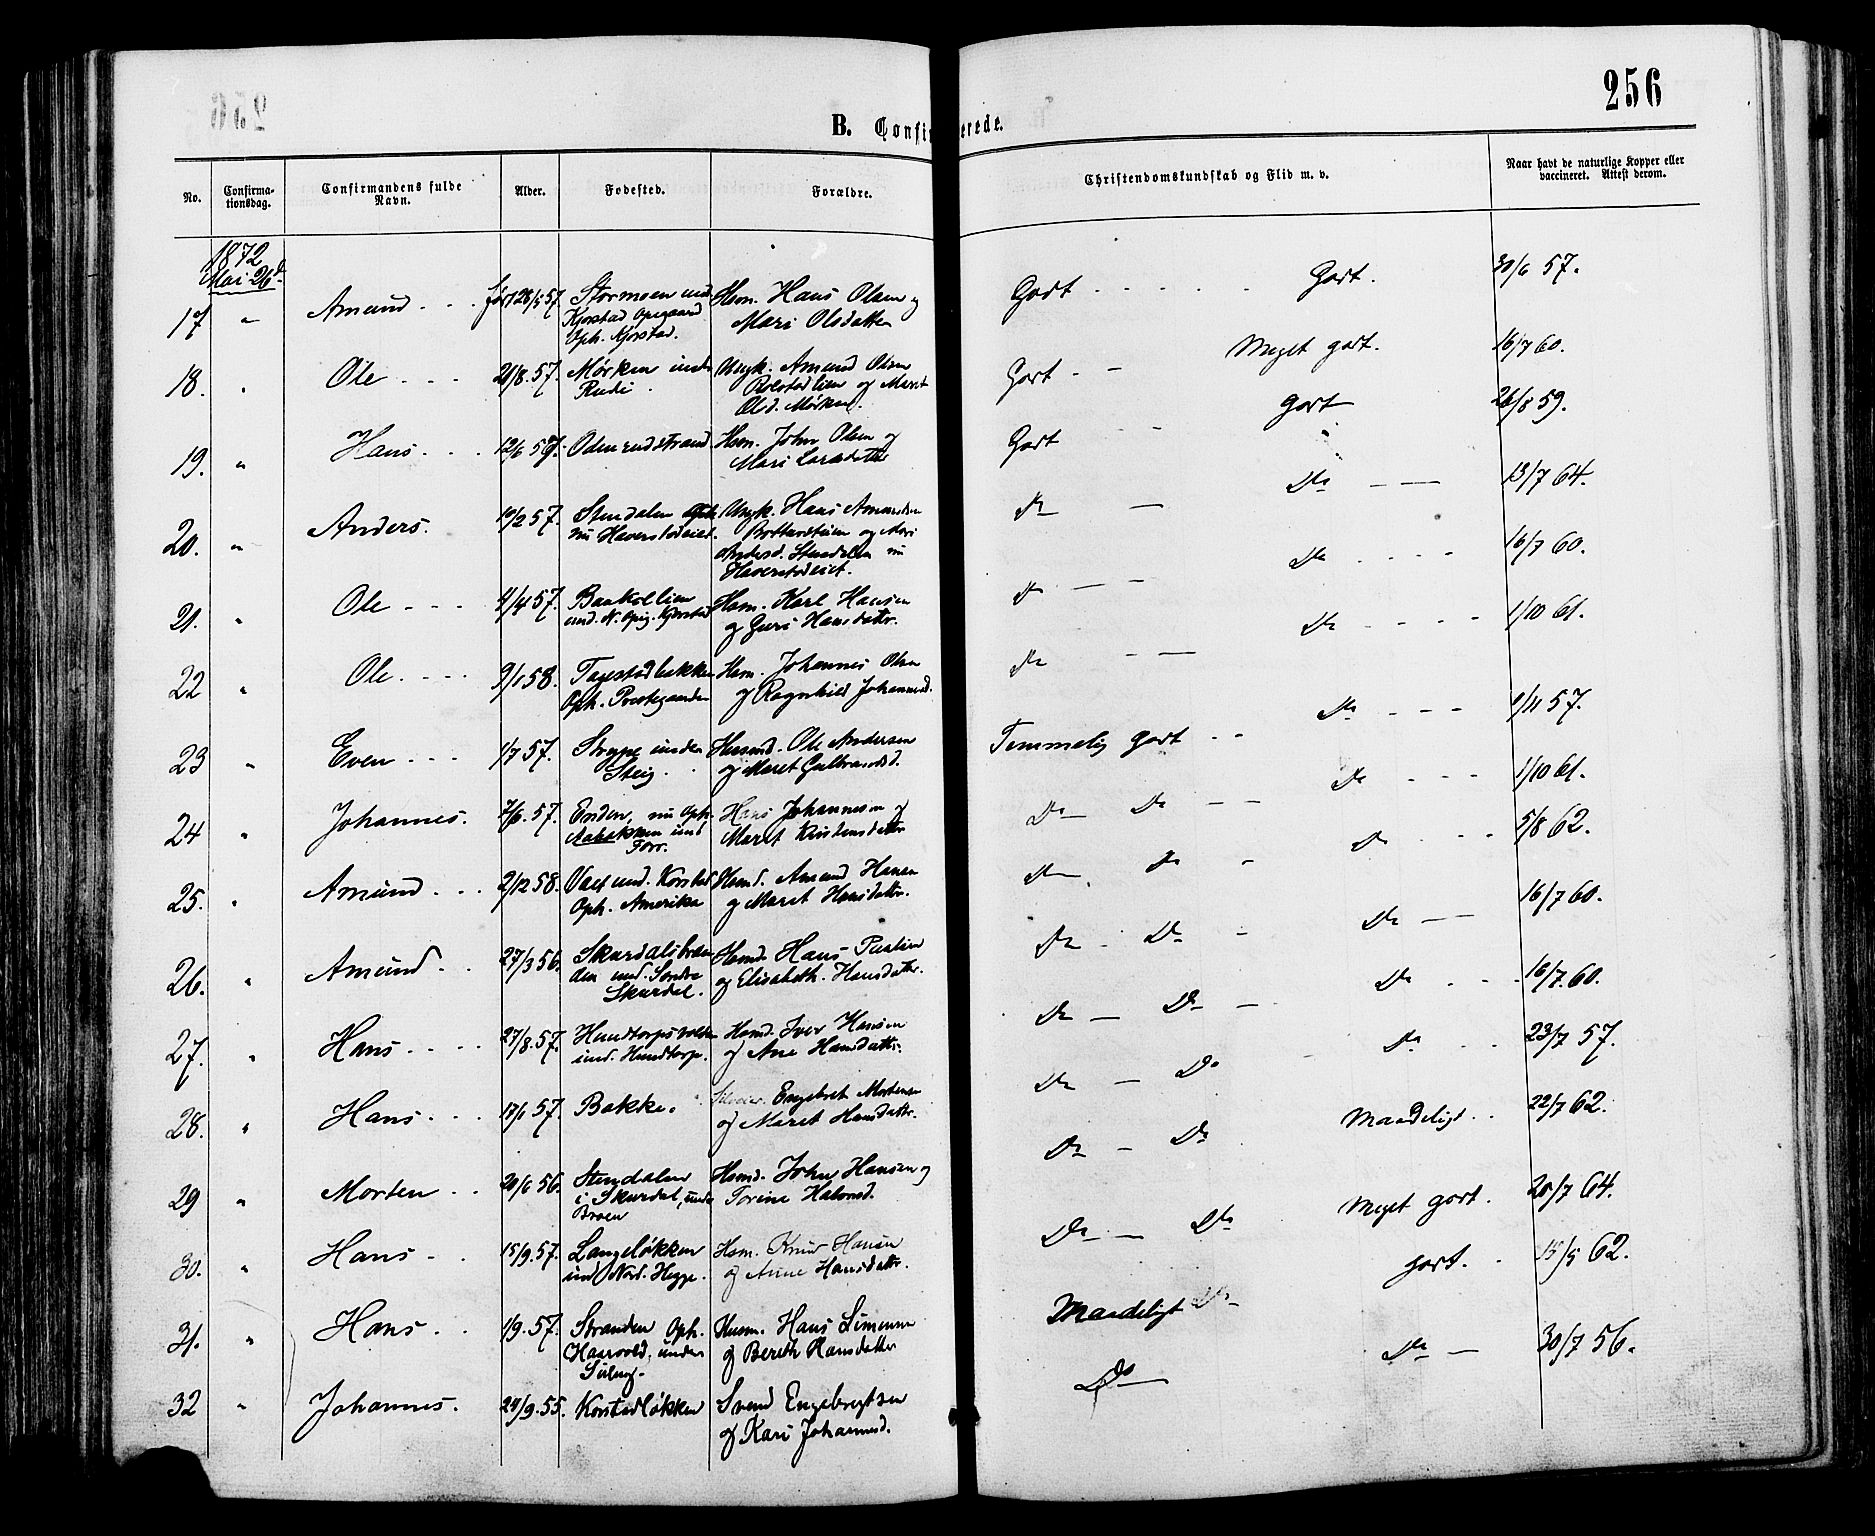 256
B. Confirmerede.
No. Confirmationsdag. Confirmandens fulde Navn. Alder. Fødested. Forældre. Christendomskundskab og Flid m. v. Naar havt de naturlige Kopper eller vaccineret. Attest derom.
1872
Mai 26d.
17 " Amund født 28/5 57. Stormoen und. Hsm. Hans Olsen og Godt Godt. 30/6 57.
Kjorstad Opegaard Mari Olsdatter
Oph. Kjorstad.
18. " Ole 21/8. 57. Mørken under Ungk. Amund Olsen Godt Meget godt. 16/7 60.
Rudi. Rolstadlien og Marit
Olsd. Mørken.
19. " Hans 12/6 57. Odenrudstrand Hsm. John Olsen og Godt godt 26/8 59.
Mari Larsdatter
20. " Anders. 10/2 57. Stendalen Oph. Ungk. Hans Amundsen Do Do 13/7 64.
nu Haverstadeiet. og Mari
Andersd. Stendalen nu
Haverstadeiet.
21. " Ole 4/4 57. Baukollien Hsm. Karl Hansen Do Do 16/7 60.
und. N. Opig. Kjorstad og Guri Hansdatter.
22 " Ole 9/1 58. Tagestadbakken Hsm. Johannes Olsen Do Do 1/10 61.
Oph. Prestegaarden og Ragnhild Johannesd.
23 " Even 1/7 57. Strype under Husmd. Ole Andersen Temmelig godt Do 1/11 57.
Steig. og Maret Gulbrandsd.
24 " Johannes. 7/6. 57. Enden, nu Oph. Hans Johannesen og Do Do Do 1/10 61.
Aabakken und Maret Kristensdatter
Forr.
25. " Amund 2/12 58. und. Korstad Hsmd. Amund Hansen Do Do Do 5/8 62.
Oph. Amerika og Maret Hansdatter.
26. " Amund 27/3 56. Skurdalsbraaden Hsmd. Hans Paulsen Do Do Do 16/7 60.
und. Søndre og Elisabeth Hansdatter.
Skurdal.
27. " Hans 27/8. 57. Hundtorpsvolden Hsmd. Iver Hansen Do Do Do 16/7. 60.
und. Hundtorp. og Ane Hansdatter.
28. " Hans 17/1 57. Bakke. Engebret Mortensen Do Do Do 23/7 57.
og Maret Hansdatter.
29 " Morten 20/6 56. Stendalen Hsmd. John Hansen og Do Do Maadeligt 22/7 62.
i Skurdal, under Torine Halvorsd.
Broen
30. " Hans 15/9. 57. Langeløkken Hsm. Knud Hansen Do Do Meget godt. 20/7 64.
und Nord. Hegge. og Anne Hansdatter.
31. " Hans 1/9. 57. Stranden Oph. Husm. Hans Simensen Maadeligt Do godt. 15/5 62.
Haarvold, under og Bereth Hansdatter
32 " Johannes. 24/9. 55. Korstadløkken Svend Engebregtsen Do Do 30/7 56.
og Kari Johannesd.